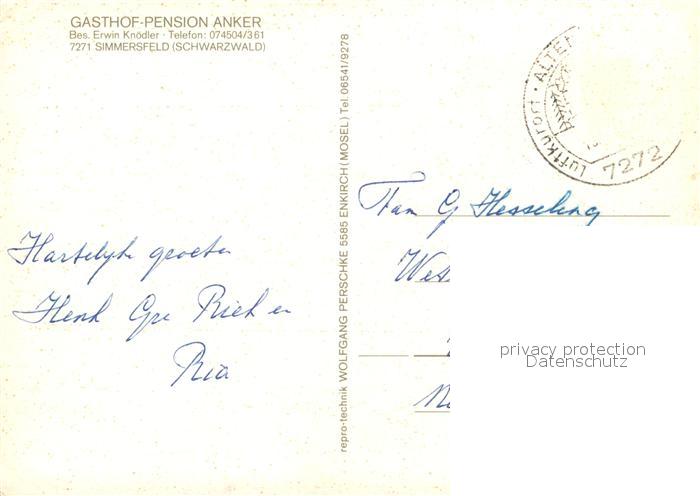 GASTHOF-PENSION ANKER
Bes. Erwin Knödler · Telefon: 074504/361
7271 SIMMERSFELD (SCHWARZWALD)
Hartelyke groeten
Henk Gre Riek en
Ria
repro-technik WOLFGANG PERSCHKE 5585 ENKIRCH (MOSEL) Tel. 06541/9278
Luftkurort · ALTEN
7272
Fam G Hesseling
Wes
privacy protection
Datenschutz